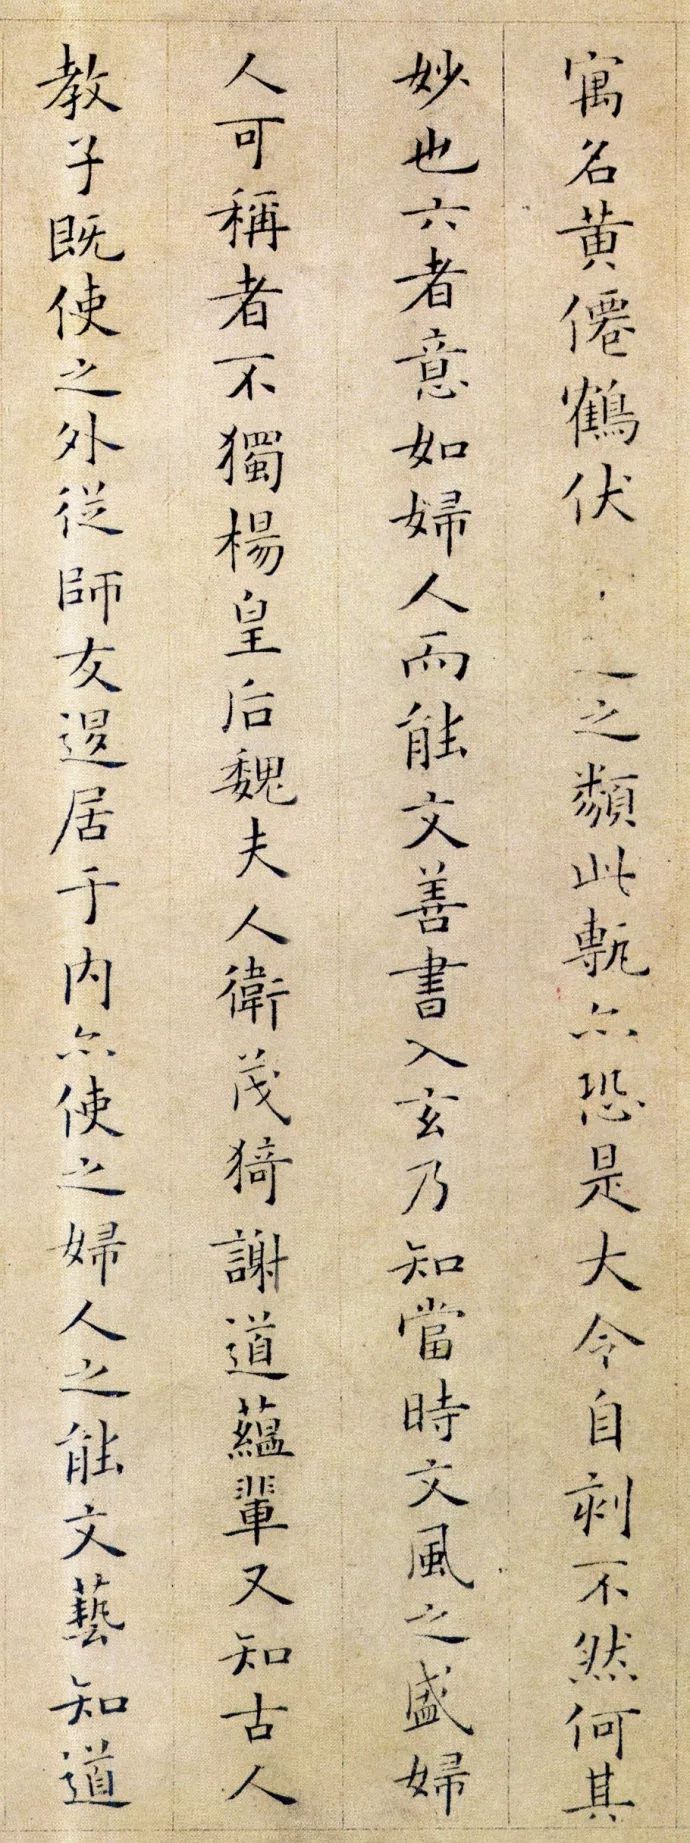 寓名黄僊鶴伏之類此甎亦恐是大令自刻不然何其
妙也六者意如婦人而能文善書入玄乃知當時文風之盛婦
人可稱者不獨楊皇后魏夫人衛茂猗謝道蘊輩又知古人
教子既使之外從師友退居于内亦使之婦人之能文藝知道